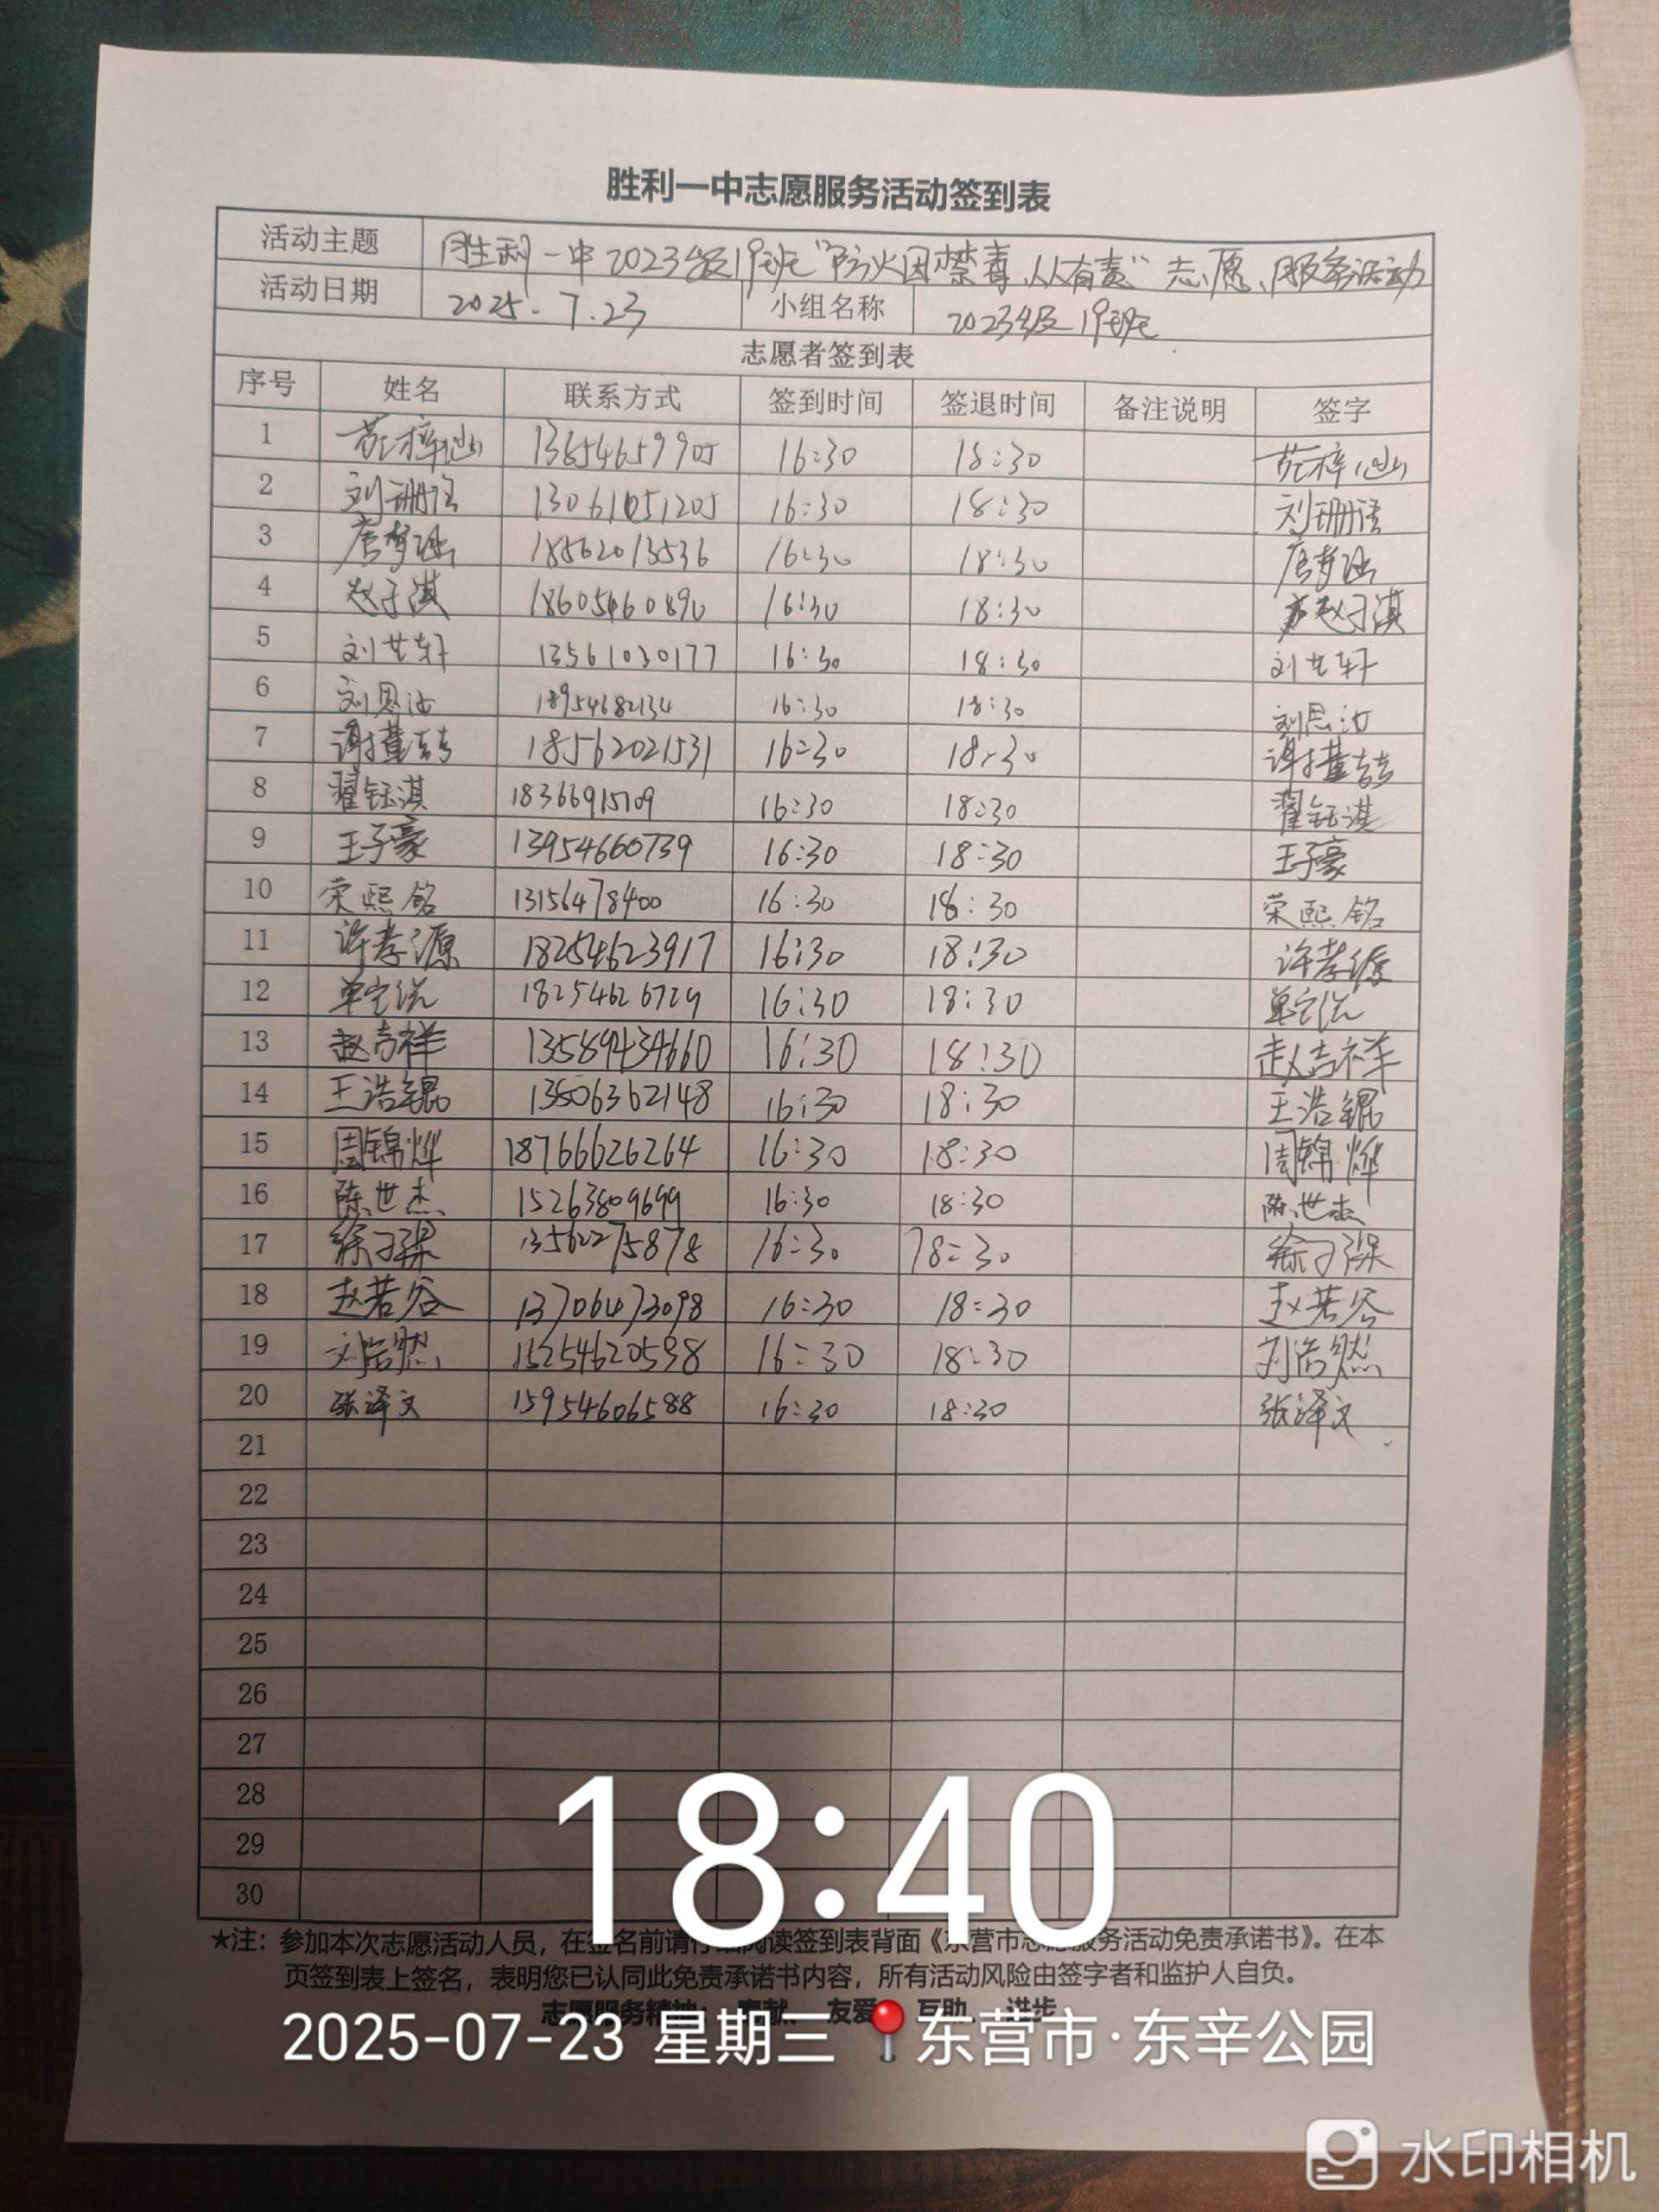 胜利一中志愿服务活动签到表
活动主题 胜利一中2023级19班“防火因禁毒,人人有责”志愿服务活动
活动日期 2025.7.23 小组名称 2023级19班
志愿者签到表
序号 姓名 联系方式 签到时间 签退时间 备注说明 签字
1 16:30 18:30
2 刘珊 13061051205 16:30 18:30 刘珊
3 唐梦涵 18562013536 16:30 18:30 唐梦涵
4 赵子淇 18605460890 16:30 18:30 赵子淇
5 刘艺轩 13561030177 16:30 18:30 刘艺轩
6 刘恩汝 18954682134 16:30 18:30 刘恩汝
7 18562021531 16:30 18:30
8 翟钰淇 18366915109 16:30 18:30 翟钰淇
9 王子豪 13954660739 16:30 18:30 王子豪
10 荣熙铭 13156478400 16:30 18:30 荣熙铭
11 许孝源 18254623917 16:30 18:30 许孝源
12 18254626729 16:30 18:30
13 赵吉祥 13589434660 16:30 18:30 赵吉祥
14 王浩锟 13506362148 16:30 18:30 王浩锟
15 周锦烨 18766626264 16:30 18:30 周锦烨
16 陈世杰 15263809699 16:30 18:30 陈世杰
17 徐子琛 13562275878 16:30 18:30 徐子琛
18 赵若谷 13706473098 16:30 18:30 赵若谷
19 刘浩然 15254620598 16:30 18:30 刘浩然
20 张泽文 15954606588 16:30 18:30 张泽文
21
22
23
24
25
26
27
28
29
30
18:40
★注：参加本次志愿活动人员，在签名前请仔细阅读签到表背面《东营市志愿服务活动免责承诺书》。在本
页签到表上签名，表明您已认同此免责承诺书内容，所有活动风险由签字者和监护人自负。
志愿服务精神：奉献、友爱、互助、进步
2025-07-23 星期三 东营市·东辛公园
水印相机